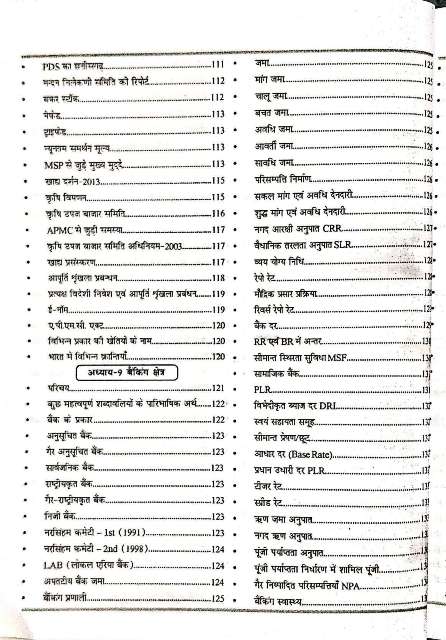 PDS का छत्तीसगढ़ 111
नन्दन निलेकणी समिति की रिपोर्ट 112
बफर स्टॉक 112
नेफेड 113
ट्राइफेड 113
न्यूनतम समर्थन मूल्य 113
MSP से जुड़े मुख्य मुद्दे 113
खाद्य दर्शन-2013 115
कृषि विपणन 115
कृषि उपज बाजार समिति 116
APMC से जुड़ी समस्या 117
कृषि उपज बाजार समिति अधिनियम-2003 117
खाद्य प्रसंस्करण 117
आपूर्ति शृंखला प्रबन्धन 118
प्रत्यक्ष विदेशी निवेश एवं आपूर्ति शृंखला प्रबंधन 119
ई-नॉम 119
ए.पी.एम.सी. एक्ट 120
विभिन्न प्रकार की खेतियों के नाम 120
भारत में विभिन्न क्रान्तियाँ 120
अध्याय-9 बैंकिंग क्षेत्र
परिचय 121
कुछ महत्वपूर्ण शब्दावलियों के पारिभाषिक अर्थ 122
बैंक के प्रकार 122
अनुसूचित बैंक 123
गैर अनुसूचित बैंक 123
सार्वजनिक बैंक 123
राष्ट्रीयकृत बैंक 123
गैर-राष्ट्रीयकृत बैंक 123
निजी बैंक 123
नरसिंहम कमेटी – 1st (1991) 123
नरसिंहम कमेटी – 2nd (1998) 124
LAB (लोकल एरिया बैंक) 124
अपतटीय बैंक जमा 124
बैंकिंग प्रणाली 125
जमा 125
मांग जमा 125
चालू जमा 125
बचत जमा 125
अवधि जमा 125
आवर्ती जमा 126
सावधि जमा 126
परिसम्पत्ति निर्माण 126
सकल मांग एवं अवधि देनदारी 126
शुद्ध मांग एवं अवधि देनदारी 126
नगद आरक्षी अनुपात CRR 127
वैधानिक तरलता अनुपात SLR 127
व्यय योग्य निधि
रेपो रेट
मौद्रिक प्रसार प्रक्रिया
रिवर्स रेपो रेट
बैंक दर
RR एवं BR में अन्तर
सीमान्त स्थिरता सुविधा MSF
सामाजिक बैंक
PLR
विभेदीकृत ब्याज दर DRI
स्वयं सहायता समूह
सीमान्त प्रेषण/छूट
आधार दर (Base Rate)
प्रधान उधारी दर PLR
टीजर रेट
स्प्रेड रेट
ऋण जमा अनुपात
नगद ऋण अनुपात
पूंजी पर्याप्तता अनुपात
पूंजी पर्याप्तता निर्धारण में शामिल पूंजी
गैर निष्पादित परिसम्पत्तियाँ NPA
बैंकिंग स्वास्थ्य